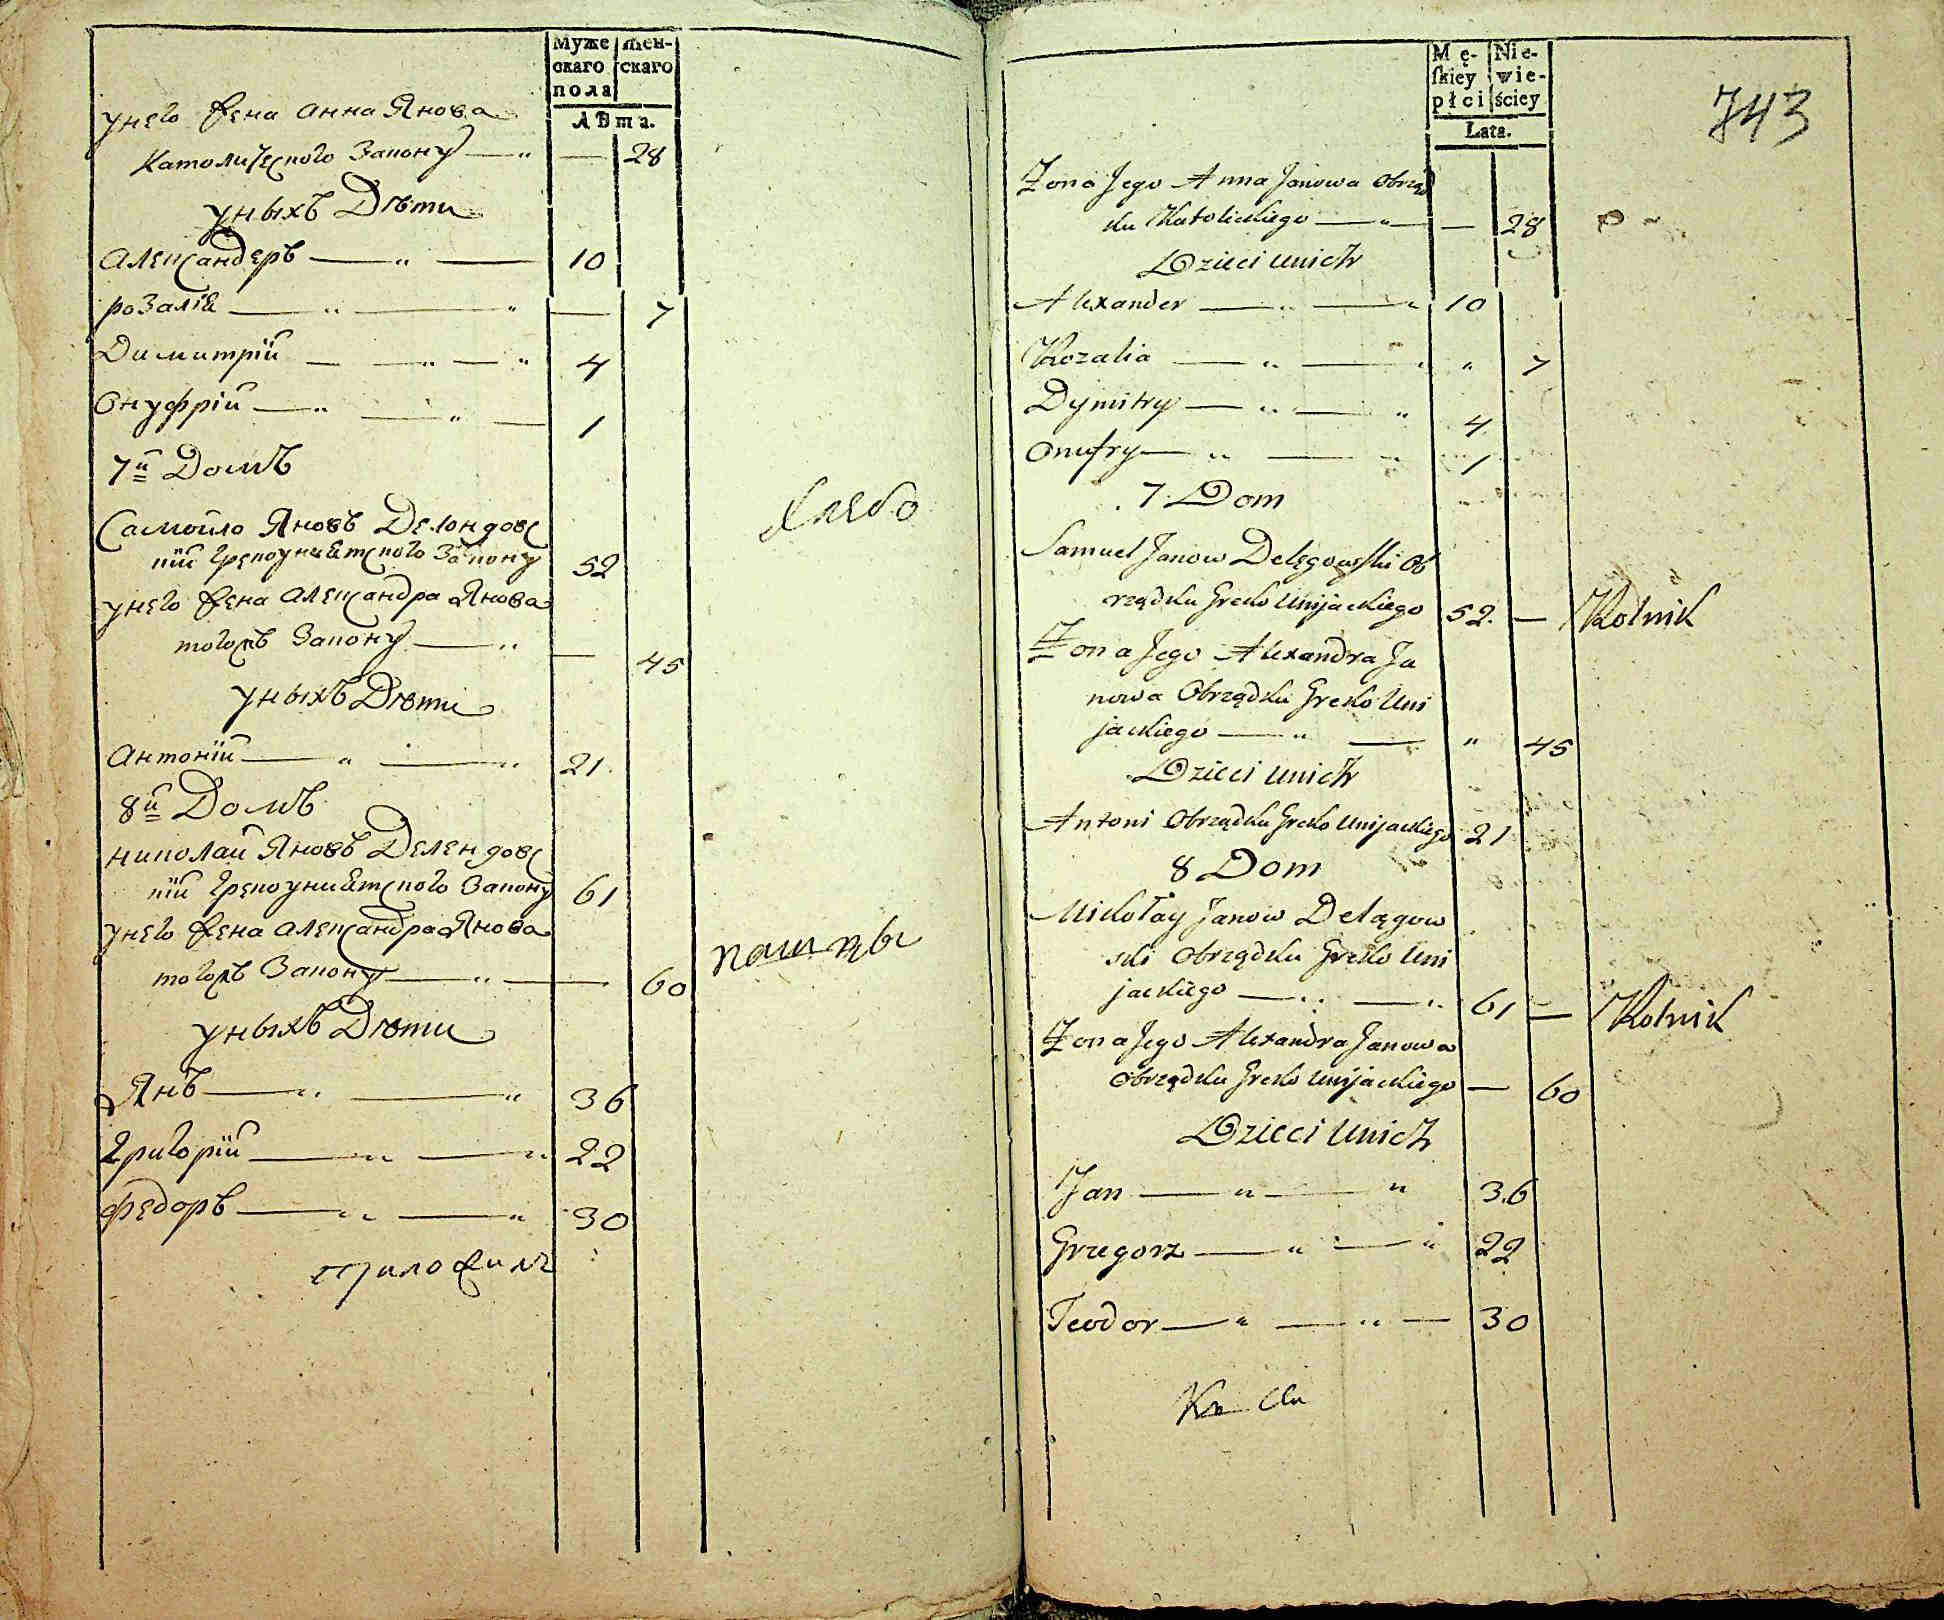 Муже
скаго
пола
жен-
скаго
лѣта.
унего жена Анна Янова
Католического Закону — „ — 28
уныхъ Дѣти
Александеръ — „ — 10
розалія — „ — „ — 7
Димитрій — „ — „ 4
Онуфрій — „ — „ — 1
7й Домъ
Самойло Яновъ Делендовс
кій Грекоуніятского Закону 52
унего жена Александра Янова
тогожъ Закону — „ — 45
уныхъ Дѣти
Антоній — „ — „ 21
8й Домъ
николай Яновъ Делендовс
кій Грекоуніятского Закону 61
унего жена Александра Янова
тогожъ Закону — „ — — 60
уныхъ Дѣти
Янъ — „ — „ 36
Григорій — „ — „ 22
Федоръ — „ — „ 30
хлебо
пашцы
743
Mę-
ſkiey
płci
Nie-
wie-
ściey
Lata.
Żona Jego Anna Janowa Obrząd
ku Katolickiego — „ — — 28
Dzieci unich
Alexander — „ — „ 10
Rozalia — „ — „ „ 7
Dymitry — „ — „ 4
Onufry — „ — „ 1
7 Dom
Samuel Janow Delęgowski Ob
rządku Greko Unijackiego 52. — Rolnik
Żona Jego Alexandra Ja
nowa Obrządku Greko Uni
jackiego — „ — „ 45
Dzieci unich
Antoni Obrządku Greko Unijackiego 21
8 Dom
Mikołay Janow Delągow
ski Obrządku Greko Uni
jackiego — „ — „ 61 — Rolnik
Żona Jego Alexandra Janowa
Obrządku Greko Unijackiego — 60
Dzieci Unich
Jan — „ — „ 36
Grzegorz — „ — „ 22
Teodor — „ — „ — 30